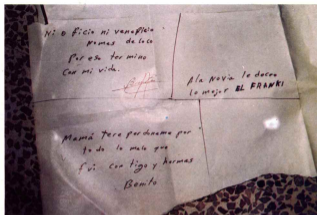 Ni o ficio ni veneficio
Nomas de loco
Por eso termino
Con mi vida.
A la Novia le deceo
lo mejor EL FRANKI
Mamá Tere perdoname por
todo lo malo que
fui contigo y hermas
Benito